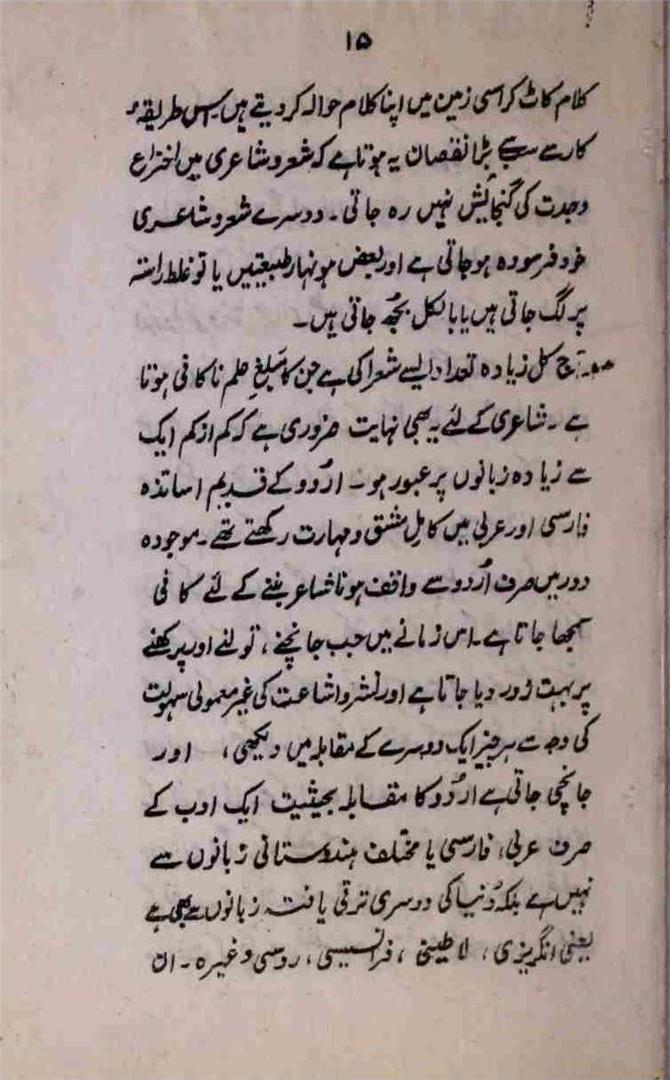 ۱۵
کلام کاٹ کر اسی زمین میں اپنا کلام حوالہ کر دیتے ہیں۔ اس طریقۂ
کار سے سب سے بڑا نقصان یہ ہوتا ہے کہ شعر و شاعری میں اختراع
و جدت کی گنجائش نہیں رہ جاتی۔ دوسرے شعر و شاعری
خود فرسودہ ہو جاتی ہے اور بعض ہونہار طبیعتیں یا تو غلط راستہ
پر لگ جاتی ہیں یا بالکل بجھ جاتی ہیں۔
آج کل زیادہ تعداد ایسے شعرا کی ہے جن کا مَبلغِ علم ناکافی ہوتا
ہے۔ شاعری کے لئے یہ بھی نہایت ضروری ہے کہ کم از کم ایک
سے زیادہ زبانوں پر عبور ہو۔ اُردو کے قدیم اساتذہ
فارسی اور عربی میں کامل مشق و مہارت رکھتے تھے۔ موجودہ
دور میں صرف اُردو سے واقف ہونا شاعر بننے کے لئے کافی
سمجھا جاتا ہے۔ اس زمانے میں جب جانچنے، تولنے اور پرکھنے
پر بہت زور دیا جاتا ہے اور نشر و اشاعت کی غیر معمولی سہولت
کی وجہ سے ہر چیز ایک دوسرے کے مقابلہ میں دیکھی، اور
جانچی جاتی ہے اُردو کا مقابلہ بحیثیت ایک ادب کے
صرف عربی، فارسی یا مختلف ہندوستانی زبانوں سے
نہیں ہے بلکہ دُنیا کی دوسری ترقی یافتہ زبانوں سے بھی ہے
یعنی انگریزی، لاطینی، فرانسیسی، روسی وغیرہ۔ ان